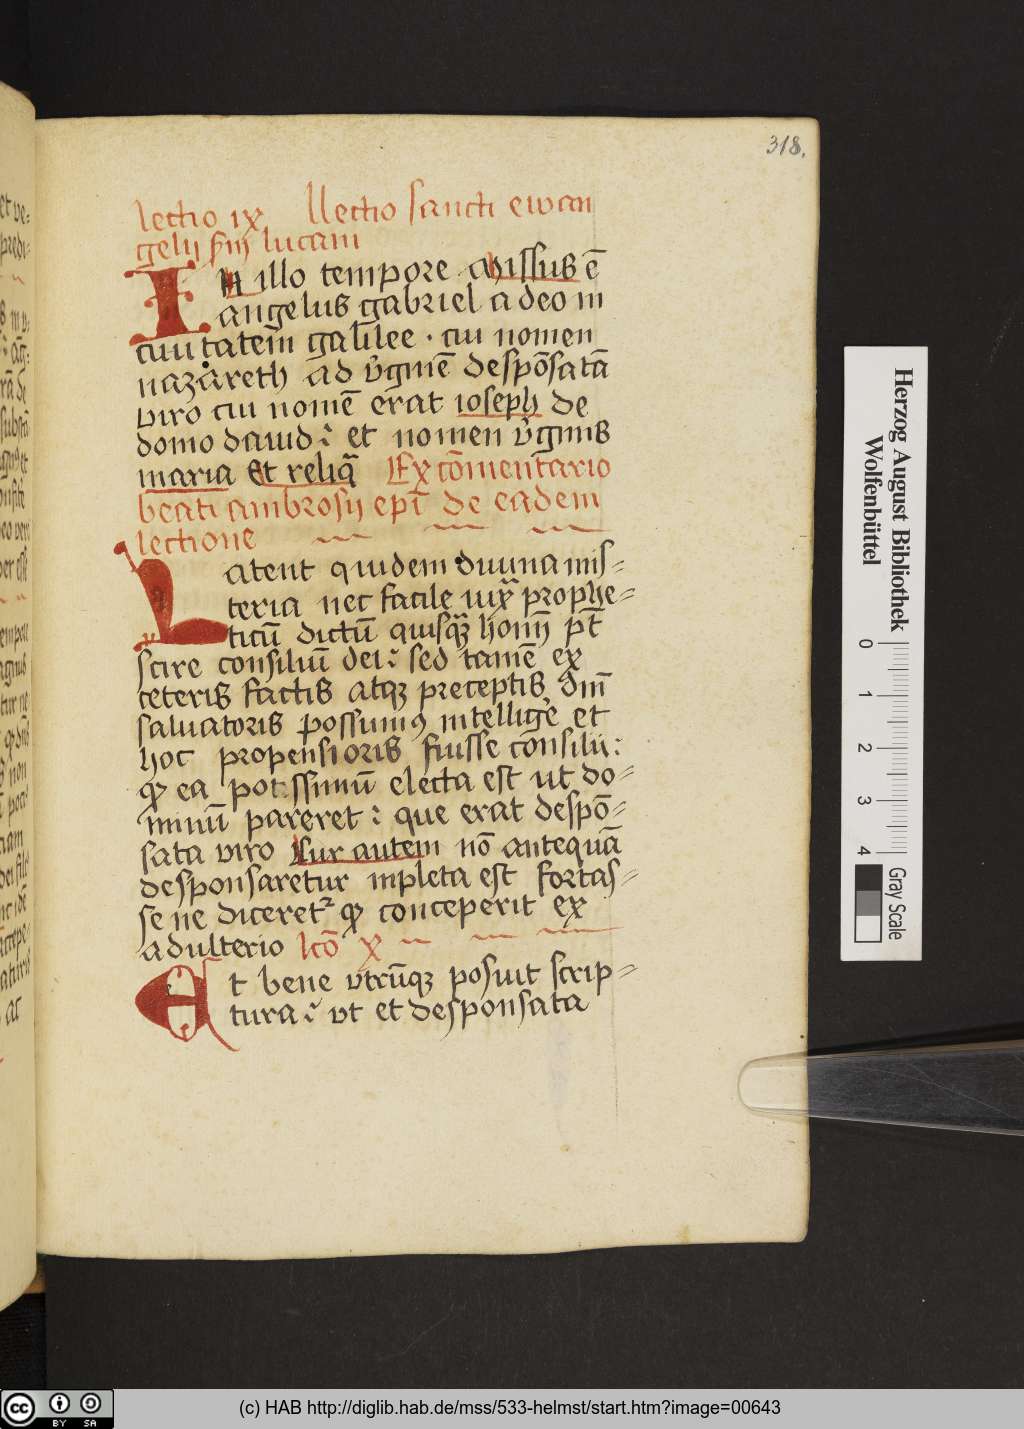 318.
lectio ix Llectio sancti ewan
gelii s̄m lucam
In illo tempore Missus ē
angelus gabriel a deo in
ciuitatem galilee · cui nomen
nazareth ad v̓ginē despōsatā
viro cui nomē erat ioseph de
domo dauid : et nomen v̓ginis
maria Et reliq̄ Ex cōmentario
beati ambrosij ep̄i de eadem
lectione
Latent quidem diuina mis-
teria nec facile iux̄ prophe-
ticū dictū quisq̄ȝ hoīm p̄t
scire consiliū dei : sed tamē ex
ceteris factis atqȝ preceptis dn̄i
saluatoris possumꝰ intellig̓e et
hoc propensioris fuisse consilij :
qꝫ ea potissimū electa est ut do-
minū pareret : que erat despō-
sata viro Cur autem nō antequā
desponsaretur inpleta est fortas-
se ne diceretᷣ qꝫ conceperit ex
adulterio lc̄o x
Et bene vtrūqȝ posuit scrip-
tura : vt et desponsata
et ve-
predi-
Herzog August Bibliothek
Wolfenbüttel
0 1 2 3 4
Gray Scale
cc BY SA
(c) HAB http://diglib.hab.de/mss/533-helmst/start.htm?image=00643